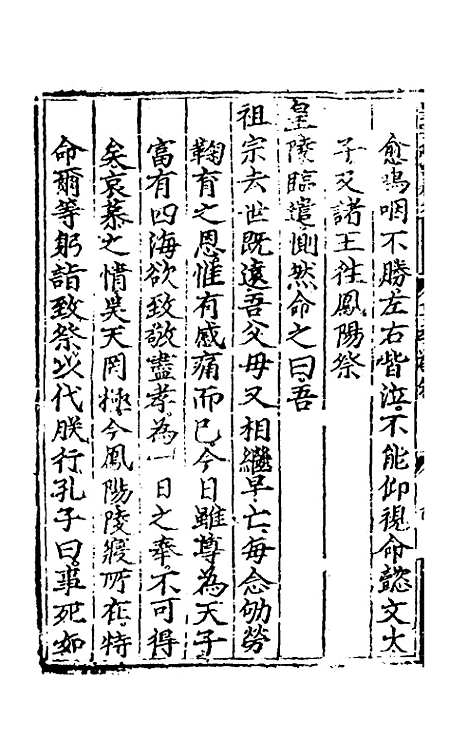 愈嗚咽不勝左右皆泣不能仰視命懿文太
子及諸王徃鳳陽祭
皇陵臨遣惻然命之曰吾
祖宗去世既遠吾父母又相繼早亡每念劬勞
鞠育之恩惟有感痛而已今日雖尊為天子
富有四海欲致敬盡孝為一日之奉不可得
矣哀慕之情昊天罔極今鳳陽陵寢所在特
命爾等躬詣致祭以代朕行孔子曰事死如